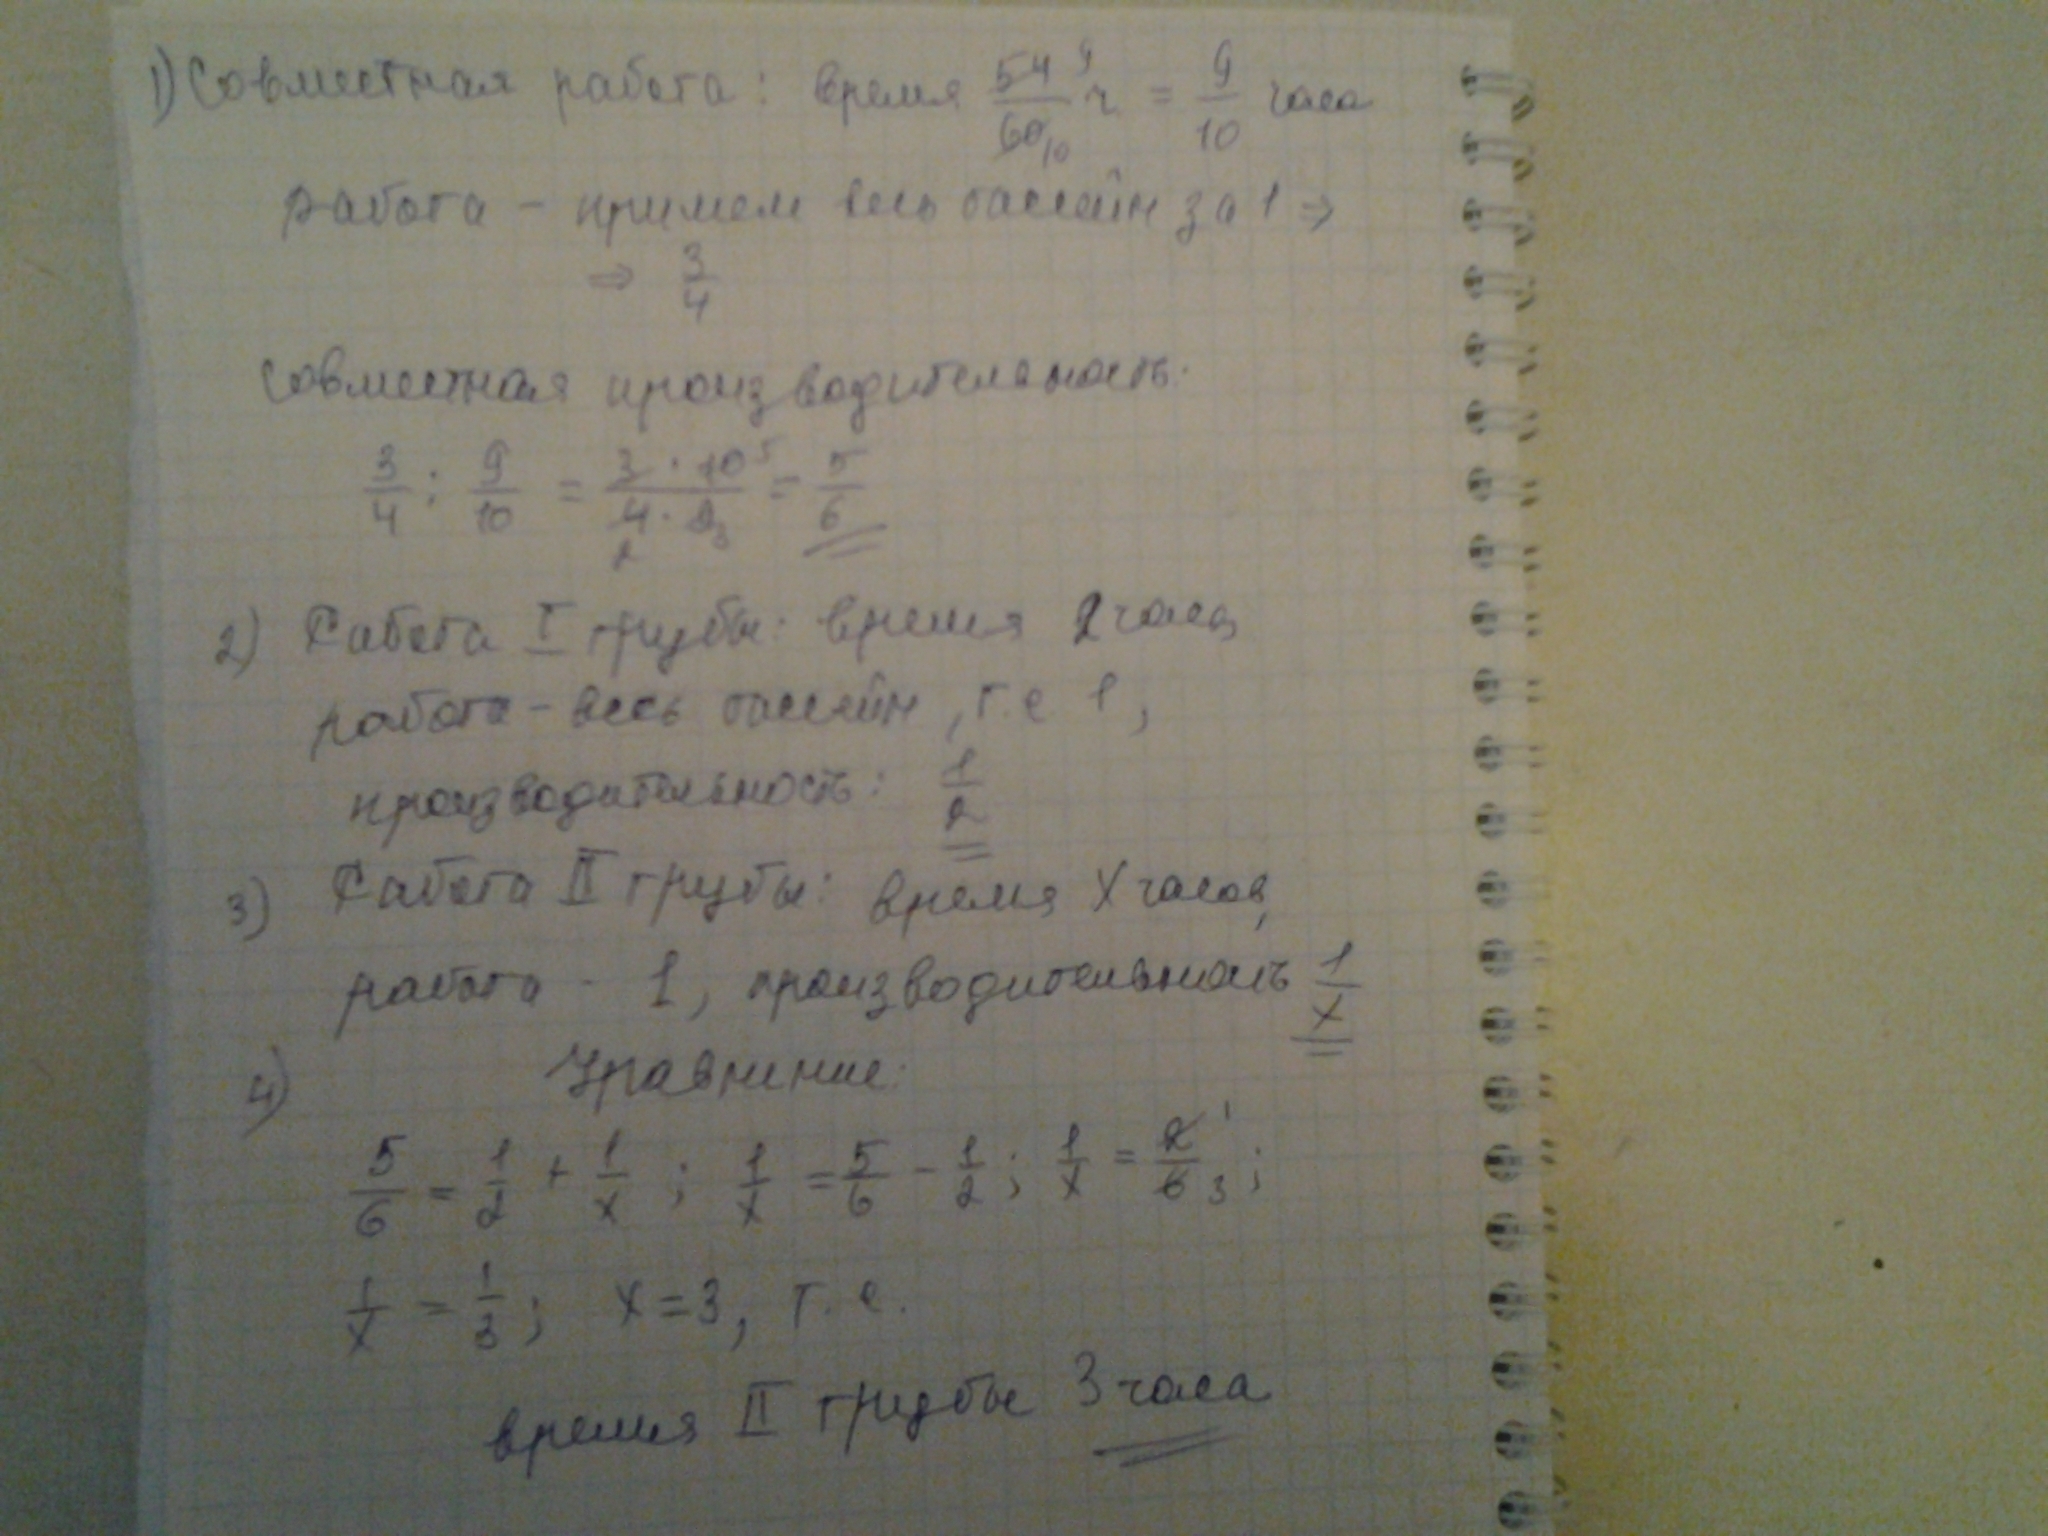 1) Совместная работа: время 54/60 ч = 9/10 часа
работа - примем весь бассейн за 1 ⇒
⇒ 3/4
совместная производительность:
3/4 : 9/10 = 3 · 10 / 4 · 9 = 5/6
2) Работа I трубы: время 2 часа,
работа - весь бассейн, т.е 1,
производительность: 1/2
3) Работа II трубы: время x часов,
работа - 1, производительность 1/x
4) Уравнение:
5/6 = 1/2 + 1/x ; 1/x = 5/6 - 1/2 ; 1/x = 2/6 ;
1/x = 1/3 ; x = 3, т.е.
время II трубы 3 часа